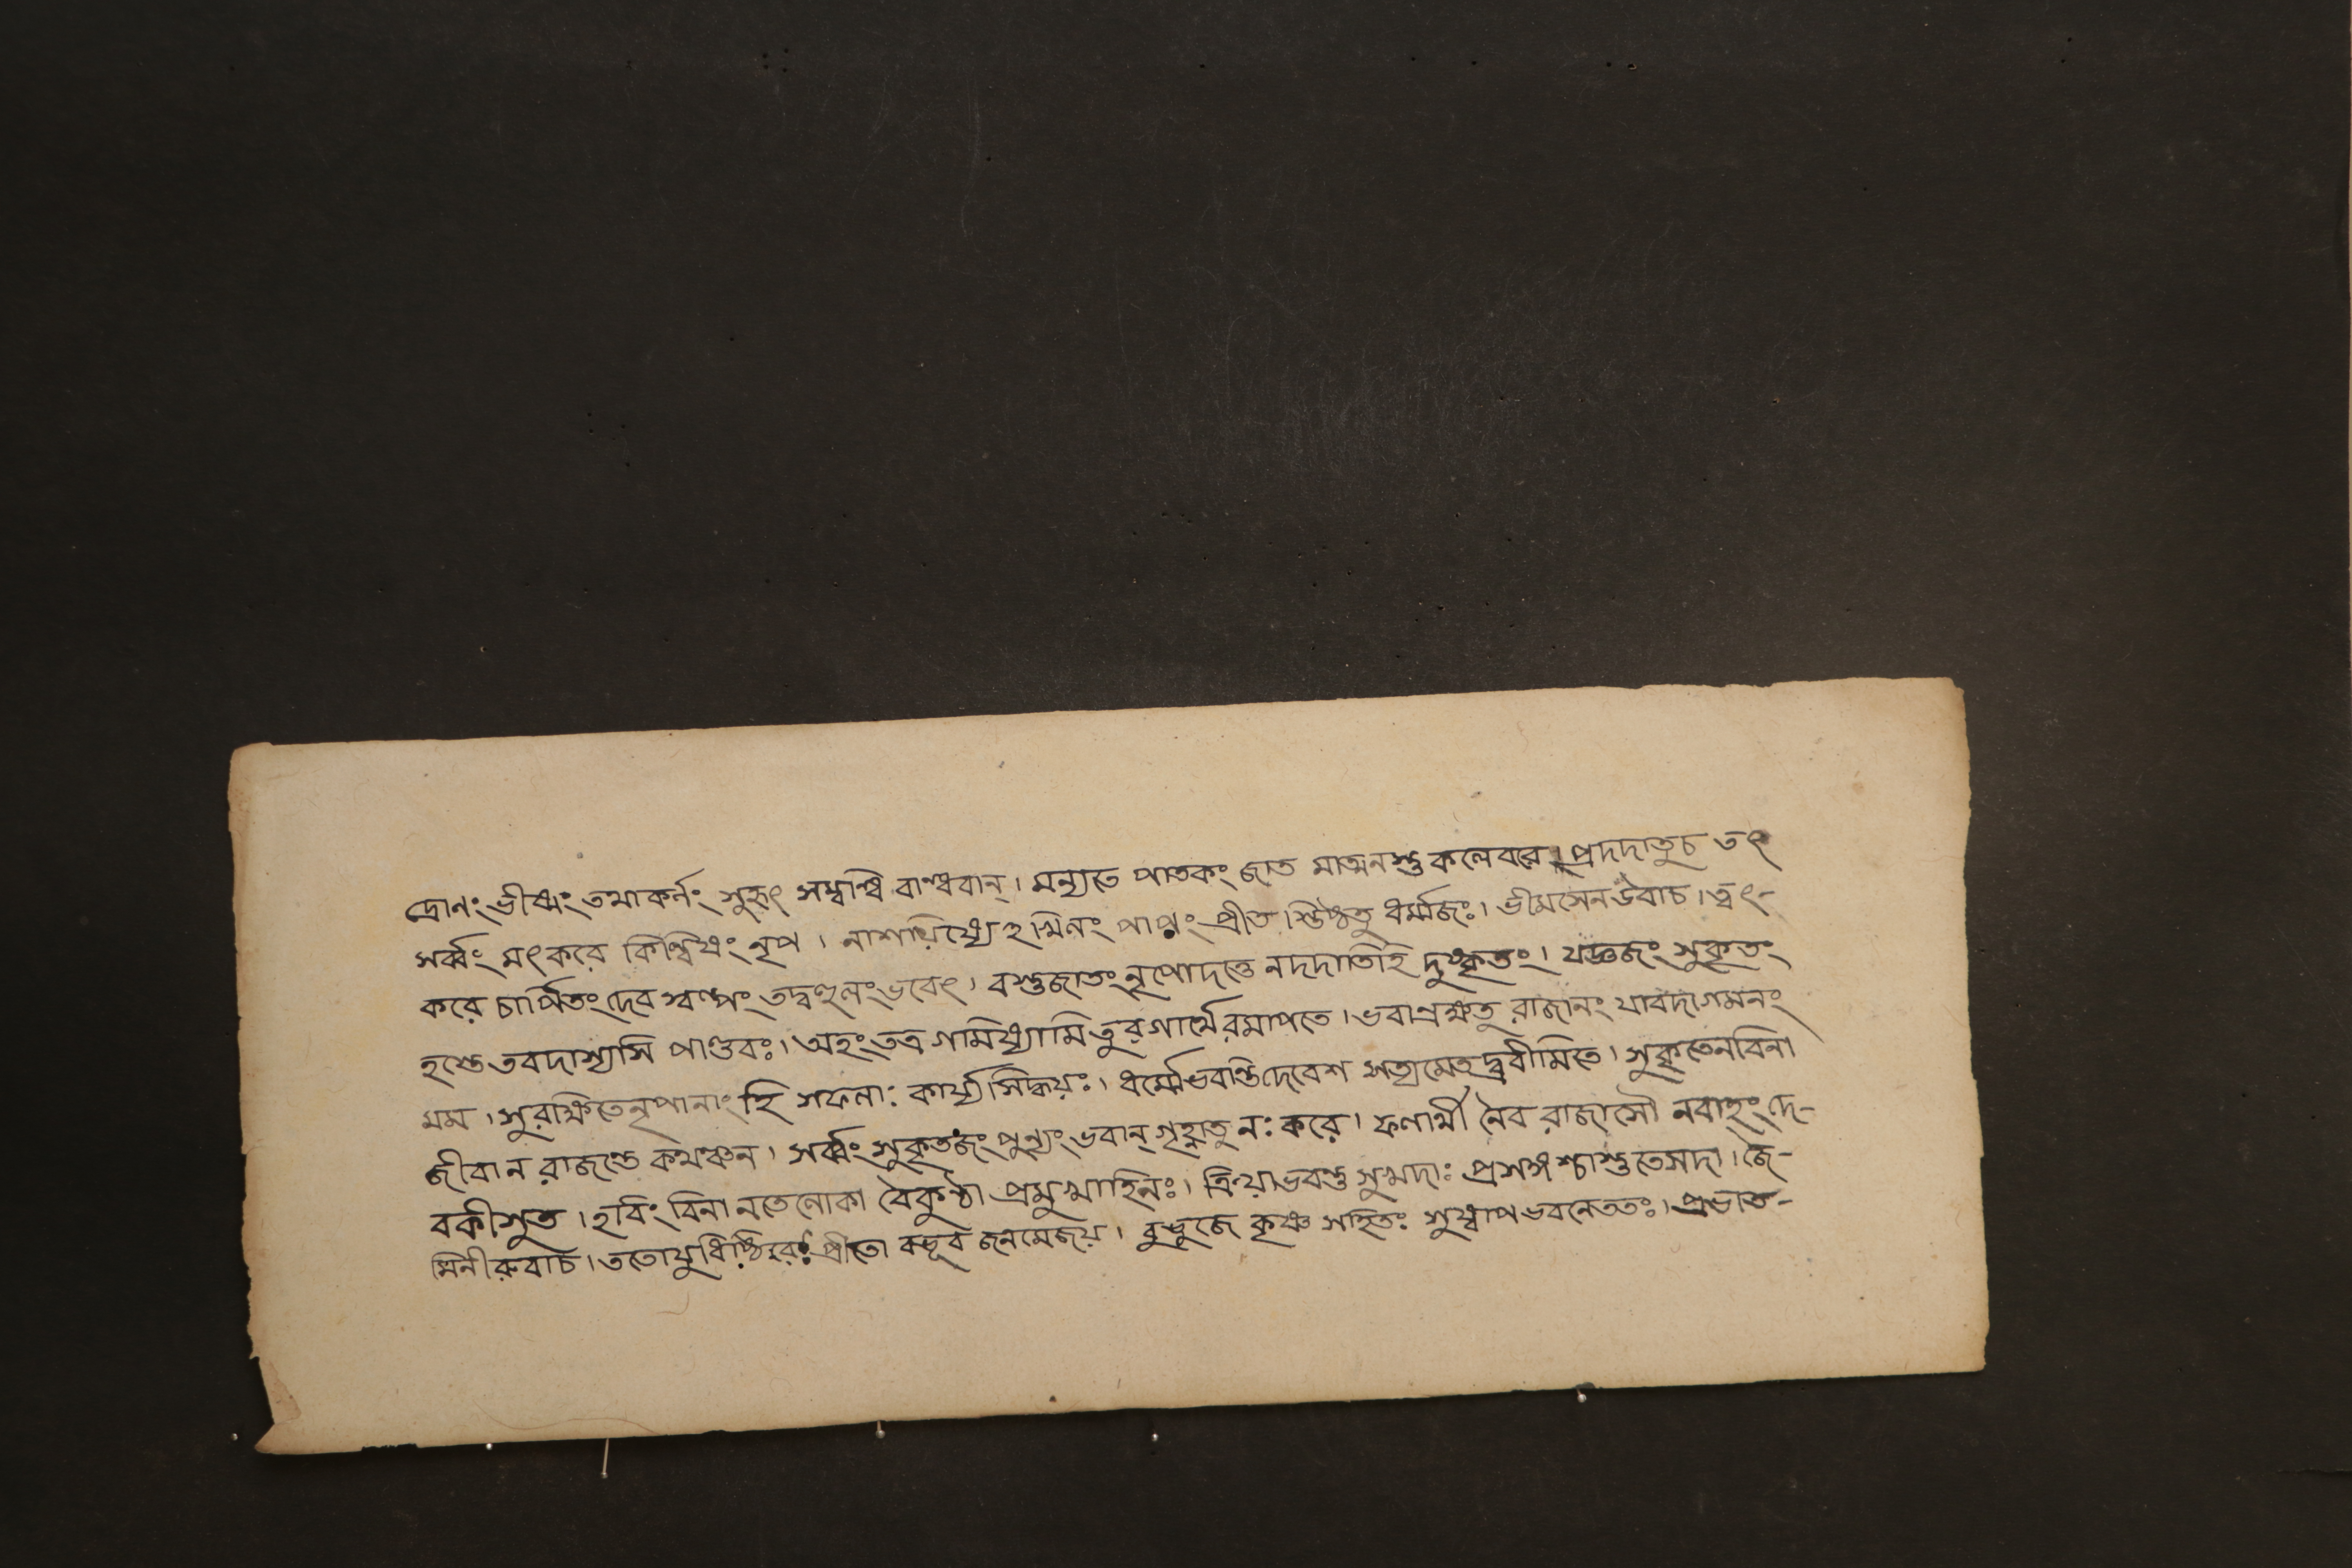 দ্রোনং ভীষ্মং তথাকর্নং সুহৃৎ সম্বন্ধি বান্ধবান্। মন্যতে পাতকং জাত মাত্মনস্তু কলেবরে। প্রদদাতুচ তৎ
সর্ব্বং মৎকরে কিল্বিষং নৃপ। নাশয়িষ্যেহমিনং পাপ্নং প্রীত স্তিষ্ঠতু ধর্ম্মজঃ। ভীমসেনউবাচ। ত্বৎ-
করে চার্পিতংদেব স্বল্পং তদ্বহুলংভবেৎ। বস্তুজাতং নৃপোদত্তে নদদাতিহি দুষ্কৃতং। যজ্ঞজং সুকৃতং
হস্তে তবদাস্যসি পাণ্ডবঃ। অহংতত্র গমিষ্যামি তুরগার্থে রমাপতে। ভবান্রক্ষতু রাজানং যাবদাগমনং
মম। সুরক্ষিতেনৃপানাং হি সফলাঃ কার্য্যসিদ্ধয়ঃ। ধর্ম্মোভবন্তিদেবেশ সত্যমেতদ্ব্রবীমিতে। সুকৃতেনবিনা
জীবান রাজন্তে কথঞ্চন। সর্ব্বং সুকৃতজং পুন্যং ভবান্ গৃহ্নাতু নঃ করে। ফলার্থী নৈব রাজাসৌ নবাহং দে-
বকীসুত। হবিং বিনা নতেলোকা বৈকুণ্ঠা প্রমুখাহিনঃ। ক্রিয়াভবন্তু সুখদাঃ প্রসঙ্গশ্চাস্তুতেসদা। জৈ-
মিনীরুবাচ। ততোযুধিষ্ঠিরঃ প্রীতো বভূব জনমেজয়। বুভুজে কৃষ্ণ সহিতঃ সুষ্বাপভবনেততঃ। প্রভাত-